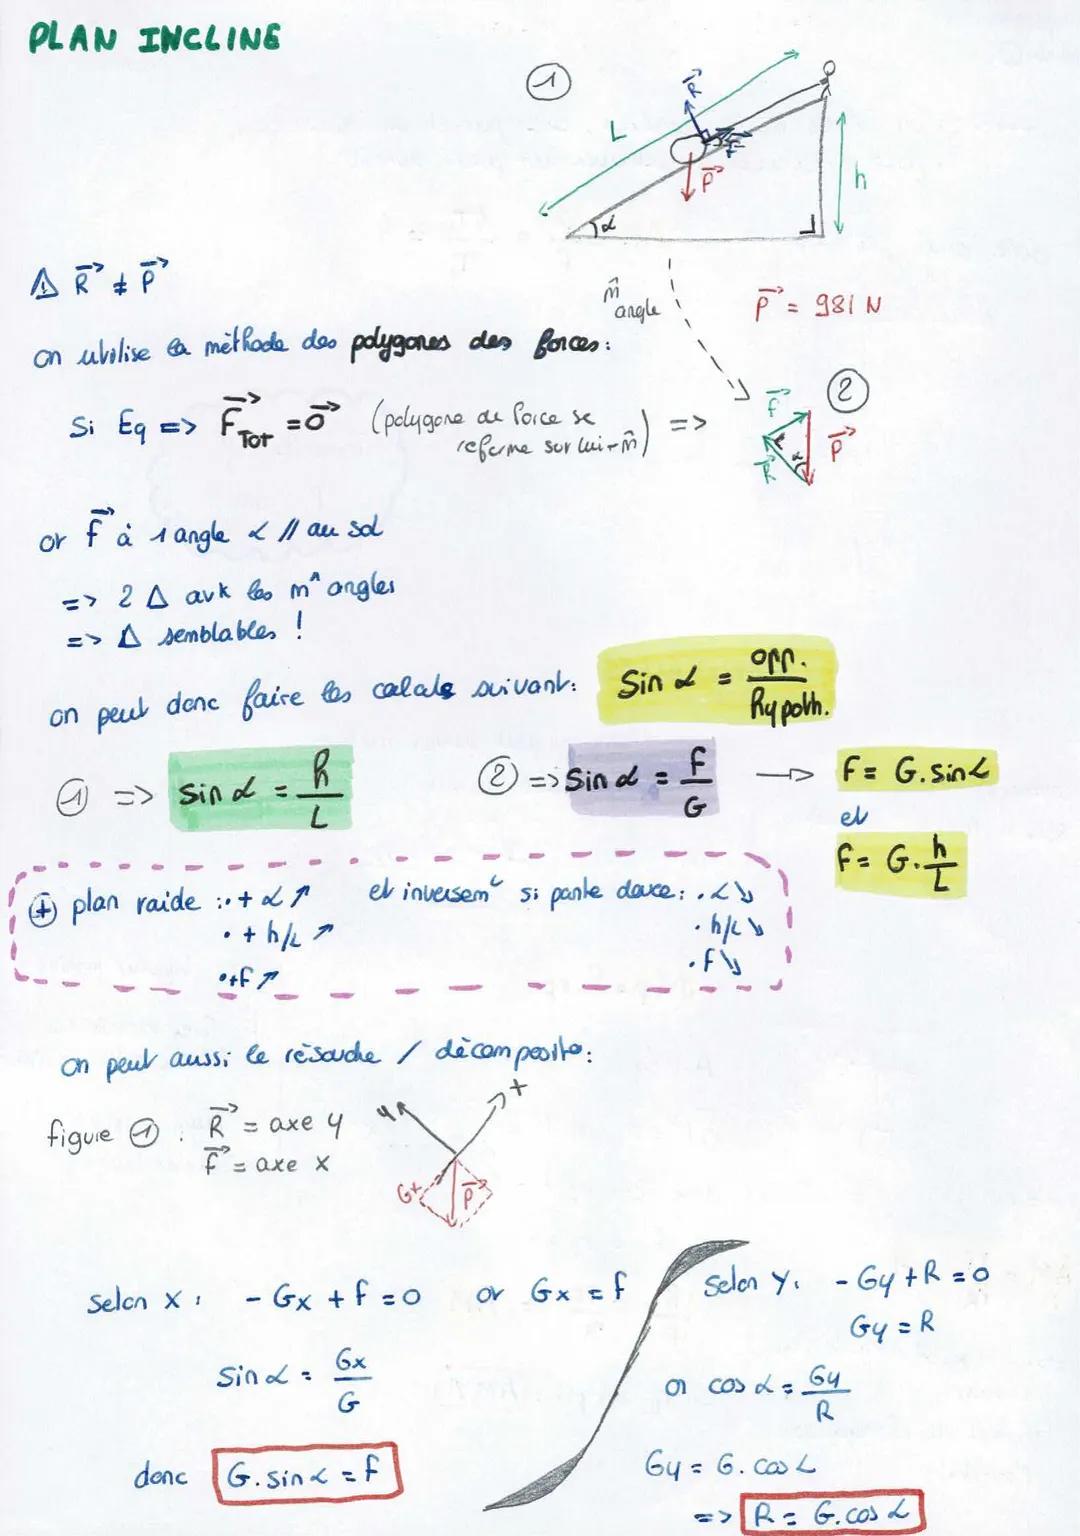 PLAN INCLINE
①
L
R→
F→
P→
h
α
⚠ R→ ≠ P→
m̂ angle
P→ = 981 N
on utilise la méthode des polygones des forces :
②
Si Eq => F→Tot = 0→ (polygone de force se referme sur lui-m̂) =>
f→
P→
R→
α
or f→ à 1 angle α // au sol
=> 2 Δ avk les m^ angles
=> Δ semblables !
on peut donc faire les calculs suivant : Sin α = opp. / hypoth.
① => Sin α = h / L
② => Sin α = F / G → F = G.sin α
et
F = G. h / L
⊕ plan raide : • + α ↗ et inversemt si pante douce : • α ↘
• + h/L ↗ • h/L ↘
• + f ↗ • f ↘
on peut aussi le résoudre / décomposito :
figure ① : R→ = axe y
f→ = axe x
y
x
Gx
P→
Selon x : - Gx + f = 0 or Gx = f
Sin α = Gx / G
donc G.sin α = f
Selon y : - Gy + R = 0
Gy = R
or cos α = Gy / R
Gy = G.cos α
=> R = G.cos α